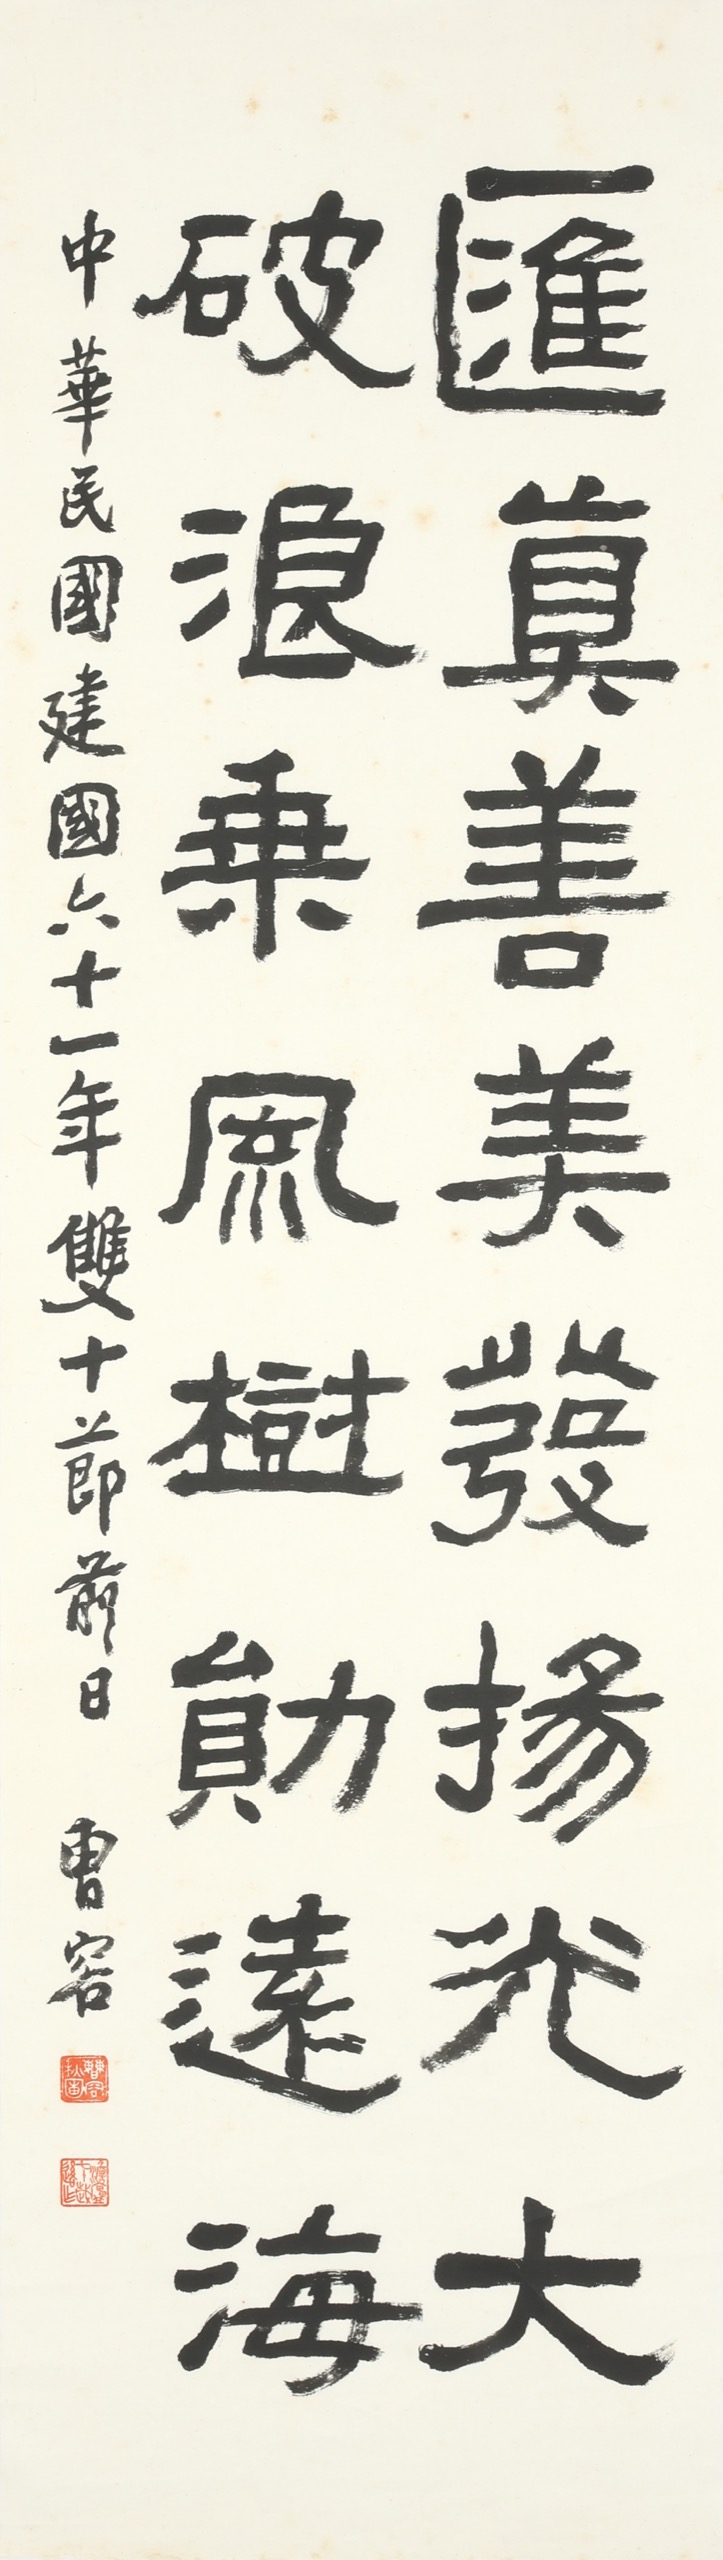 匯真善美發揚光大
破浪乘風樹勛遠海
中華民國建國六十一年雙十節前日 曹容